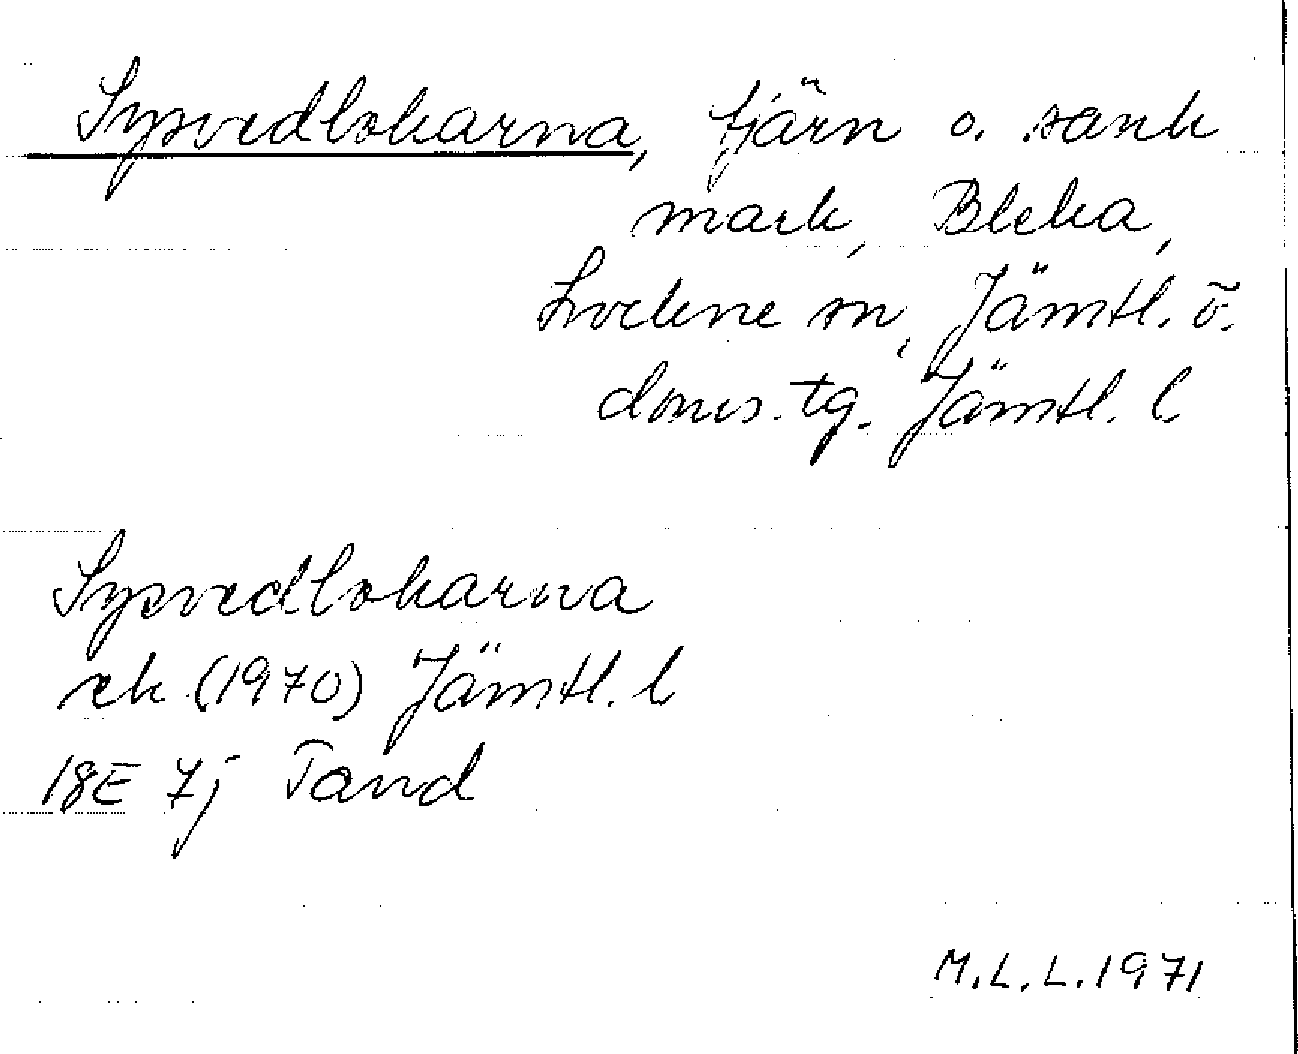 Sysvedlokarna, tjärn o. sank
mark, Bleka,
Lockne sn, Jämtl. ö.
doms. tg. Jämtl. l
Sysvedlokarna
ek (1970) Jämtl. l
18E 7j Tand
M.L.L. 1971